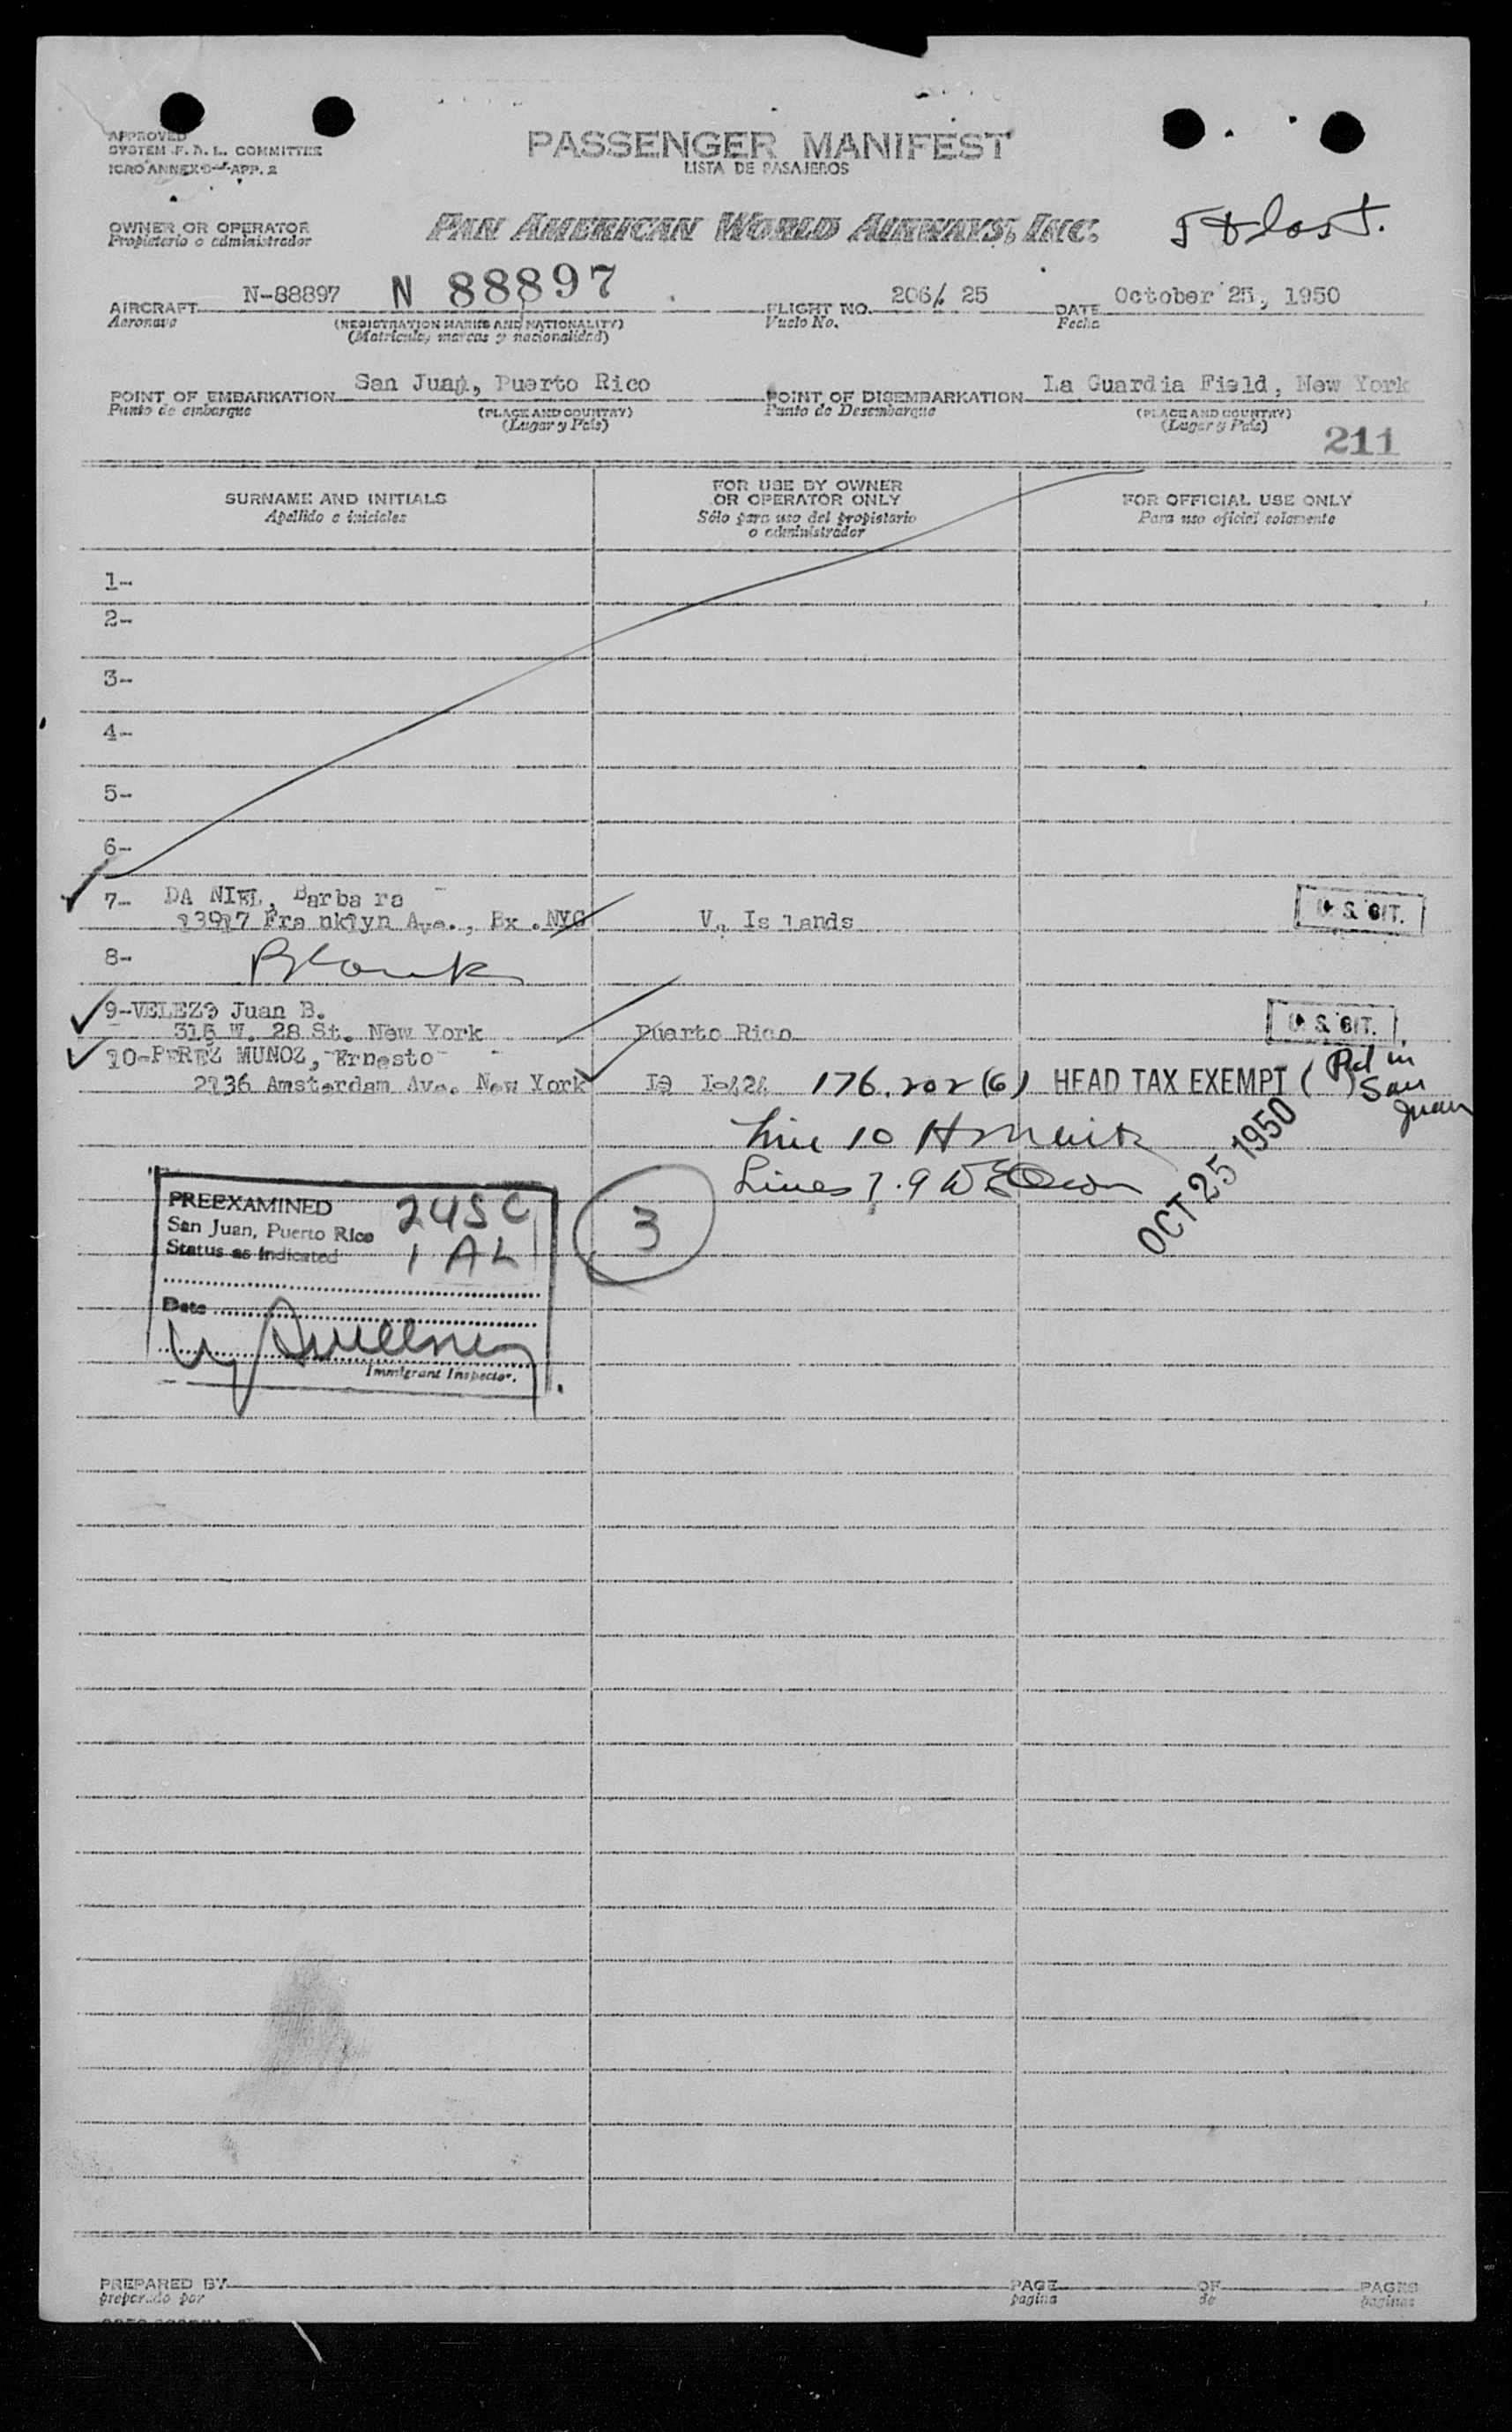 APPROVED
SYSTEM F. A. L. COMMITTEE
ICAO ANNEX 9-APP. 2
PASSENGER MANIFEST
LISTA DE PASAJEROS
OWNER OR OPERATOR
Propietario o administrador
PAN AMERICAN WORLD AIRWAYS, INC.
AIRCRAFT N-88897 N 88897
Aeronave
(REGISTRATION MARKS AND NATIONALITY)
(Matricula, marcas y nacionalidad)
FLIGHT NO. 206/ 25
Vuelo No.
DATE October 25, 1950
Fecha
POINT OF EMBARKATION San Juan, Puerto Rico
Punto de embarque
(PLACE AND COUNTRY)
(Lugar y País)
POINT OF DISEMBARKATION La Guardia Field, New York
Punto de Desembarque
(PLACE AND COUNTRY)
(Lugar y País)
211
SURNAME AND INITIALS
Apellido e iniciales
FOR USE BY OWNER
OR OPERATOR ONLY
Sólo para uso del propietario
o administrador
FOR OFFICIAL USE ONLY
Para uso oficial solamente
1-
2-
3-
4-
5-
6-
7- DANIEL, Barbara
Franklyn Ave., Bx. NYC V. Islands U. S. CIT.
8- Blank
9-VELEZ, Juan B.
315 W. 28 St. New York Puerto Rico U. S. CIT.
10-PEREZ MUNOZ, Ernesto
2136 Amsterdam Ave. New York 176.202(6) HEAD TAX EXEMPT ( ) Pd in San Juan
Line 10
Lines 7.9
OCT 25 1950
PREEXAMINED
San Juan, Puerto Rico
Status as Indicated
2 USC
1 AL
3
Date
Immigrant Inspector.
PREPARED BY
preparado por
PAGE OF PAGES
pagina de paginas